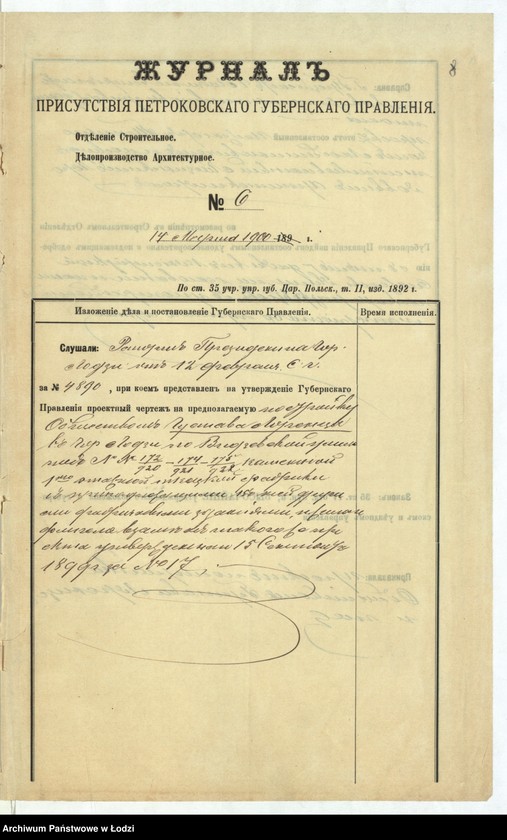 8
ЖУРНАЛЪ
ПРИСУТСТВІЯ ПЕТРОКОВСКАГО ГУБЕРНСКАГО ПРАВЛЕНІЯ.
Отдѣленіе Строительное.
Дѣлопроизводство Архитектурное.
№ 6
17 Марта 1900 189 г.
По ст. 35 учр. упр. губ. Цар. Польск., т. II, изд. 1892 г.
Изложеніе дѣла и постановленіе Губернскаго Правленія.
Время исполненія.
Слушали: Рапортъ Президента гор.
Лодзи отъ 12 февраля с. г.
за № 4890, при коемъ представленъ на утвержденіе Губернскаго
Правленія проектный чертежъ на предполагаемую постройку
Обществомъ Густава Лоренца
въ гор Лодзи по Видзовской улицѣ
подъ №№ 172/920 - 174/921 - 175/922 каменной
1но этажной ткацкой фабрики
съ
взамѣнъ таковаго про
екта утвержденнаго 15 Сентября
1899 г за № 17.
Archiwum Państwowe w Łodzi